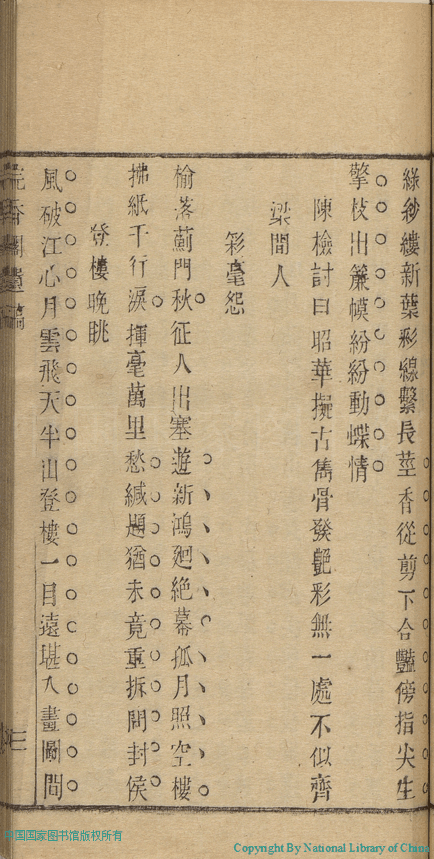 綠紗縷新葉彩線繫長莖香從剪下合豔傍指尖生
擎枝出簾幙紛紛動蝶情
陳檢討曰昭華擬古雋骨發艷彩無一處不似齊
梁間人
彩毫怨
榆落薊門秋征人出塞遊新鴻廻絕幕孤月照空樓
拂紙千行淚揮毫萬里愁緘題猶未竟重拆問封侯
登樓晚眺
風破江心月雲飛天半山登樓一目遠堪入畫圖間
三
中国国家图书馆版权所有
Copyright By National Library of China